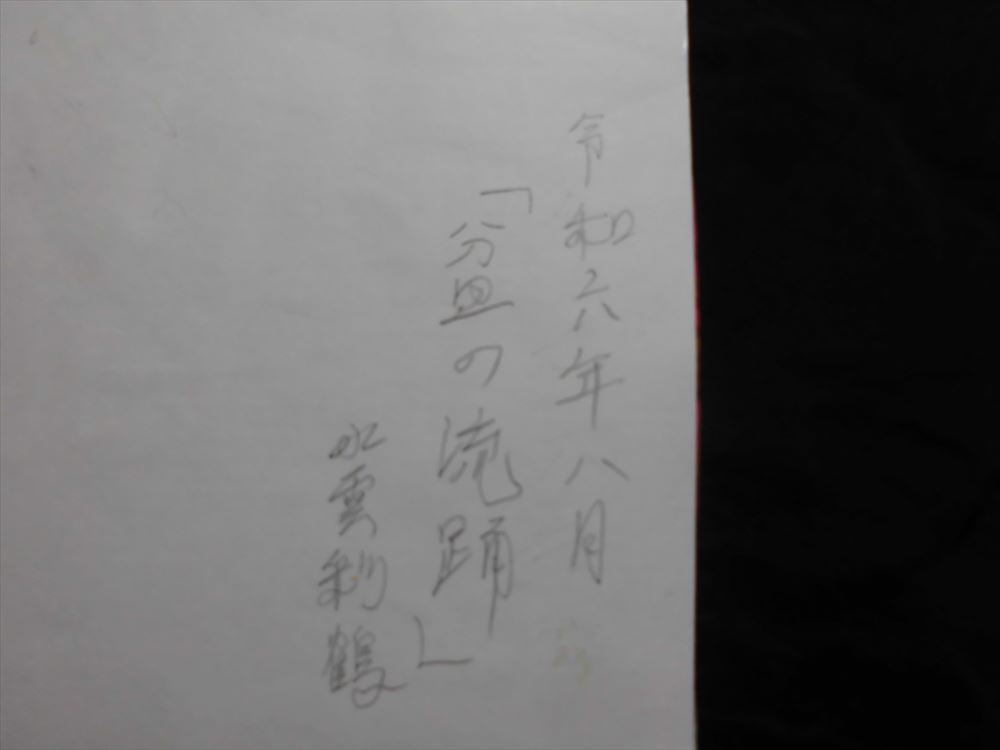 令和六年八月
「盆の流踊」
水雲彩鶴